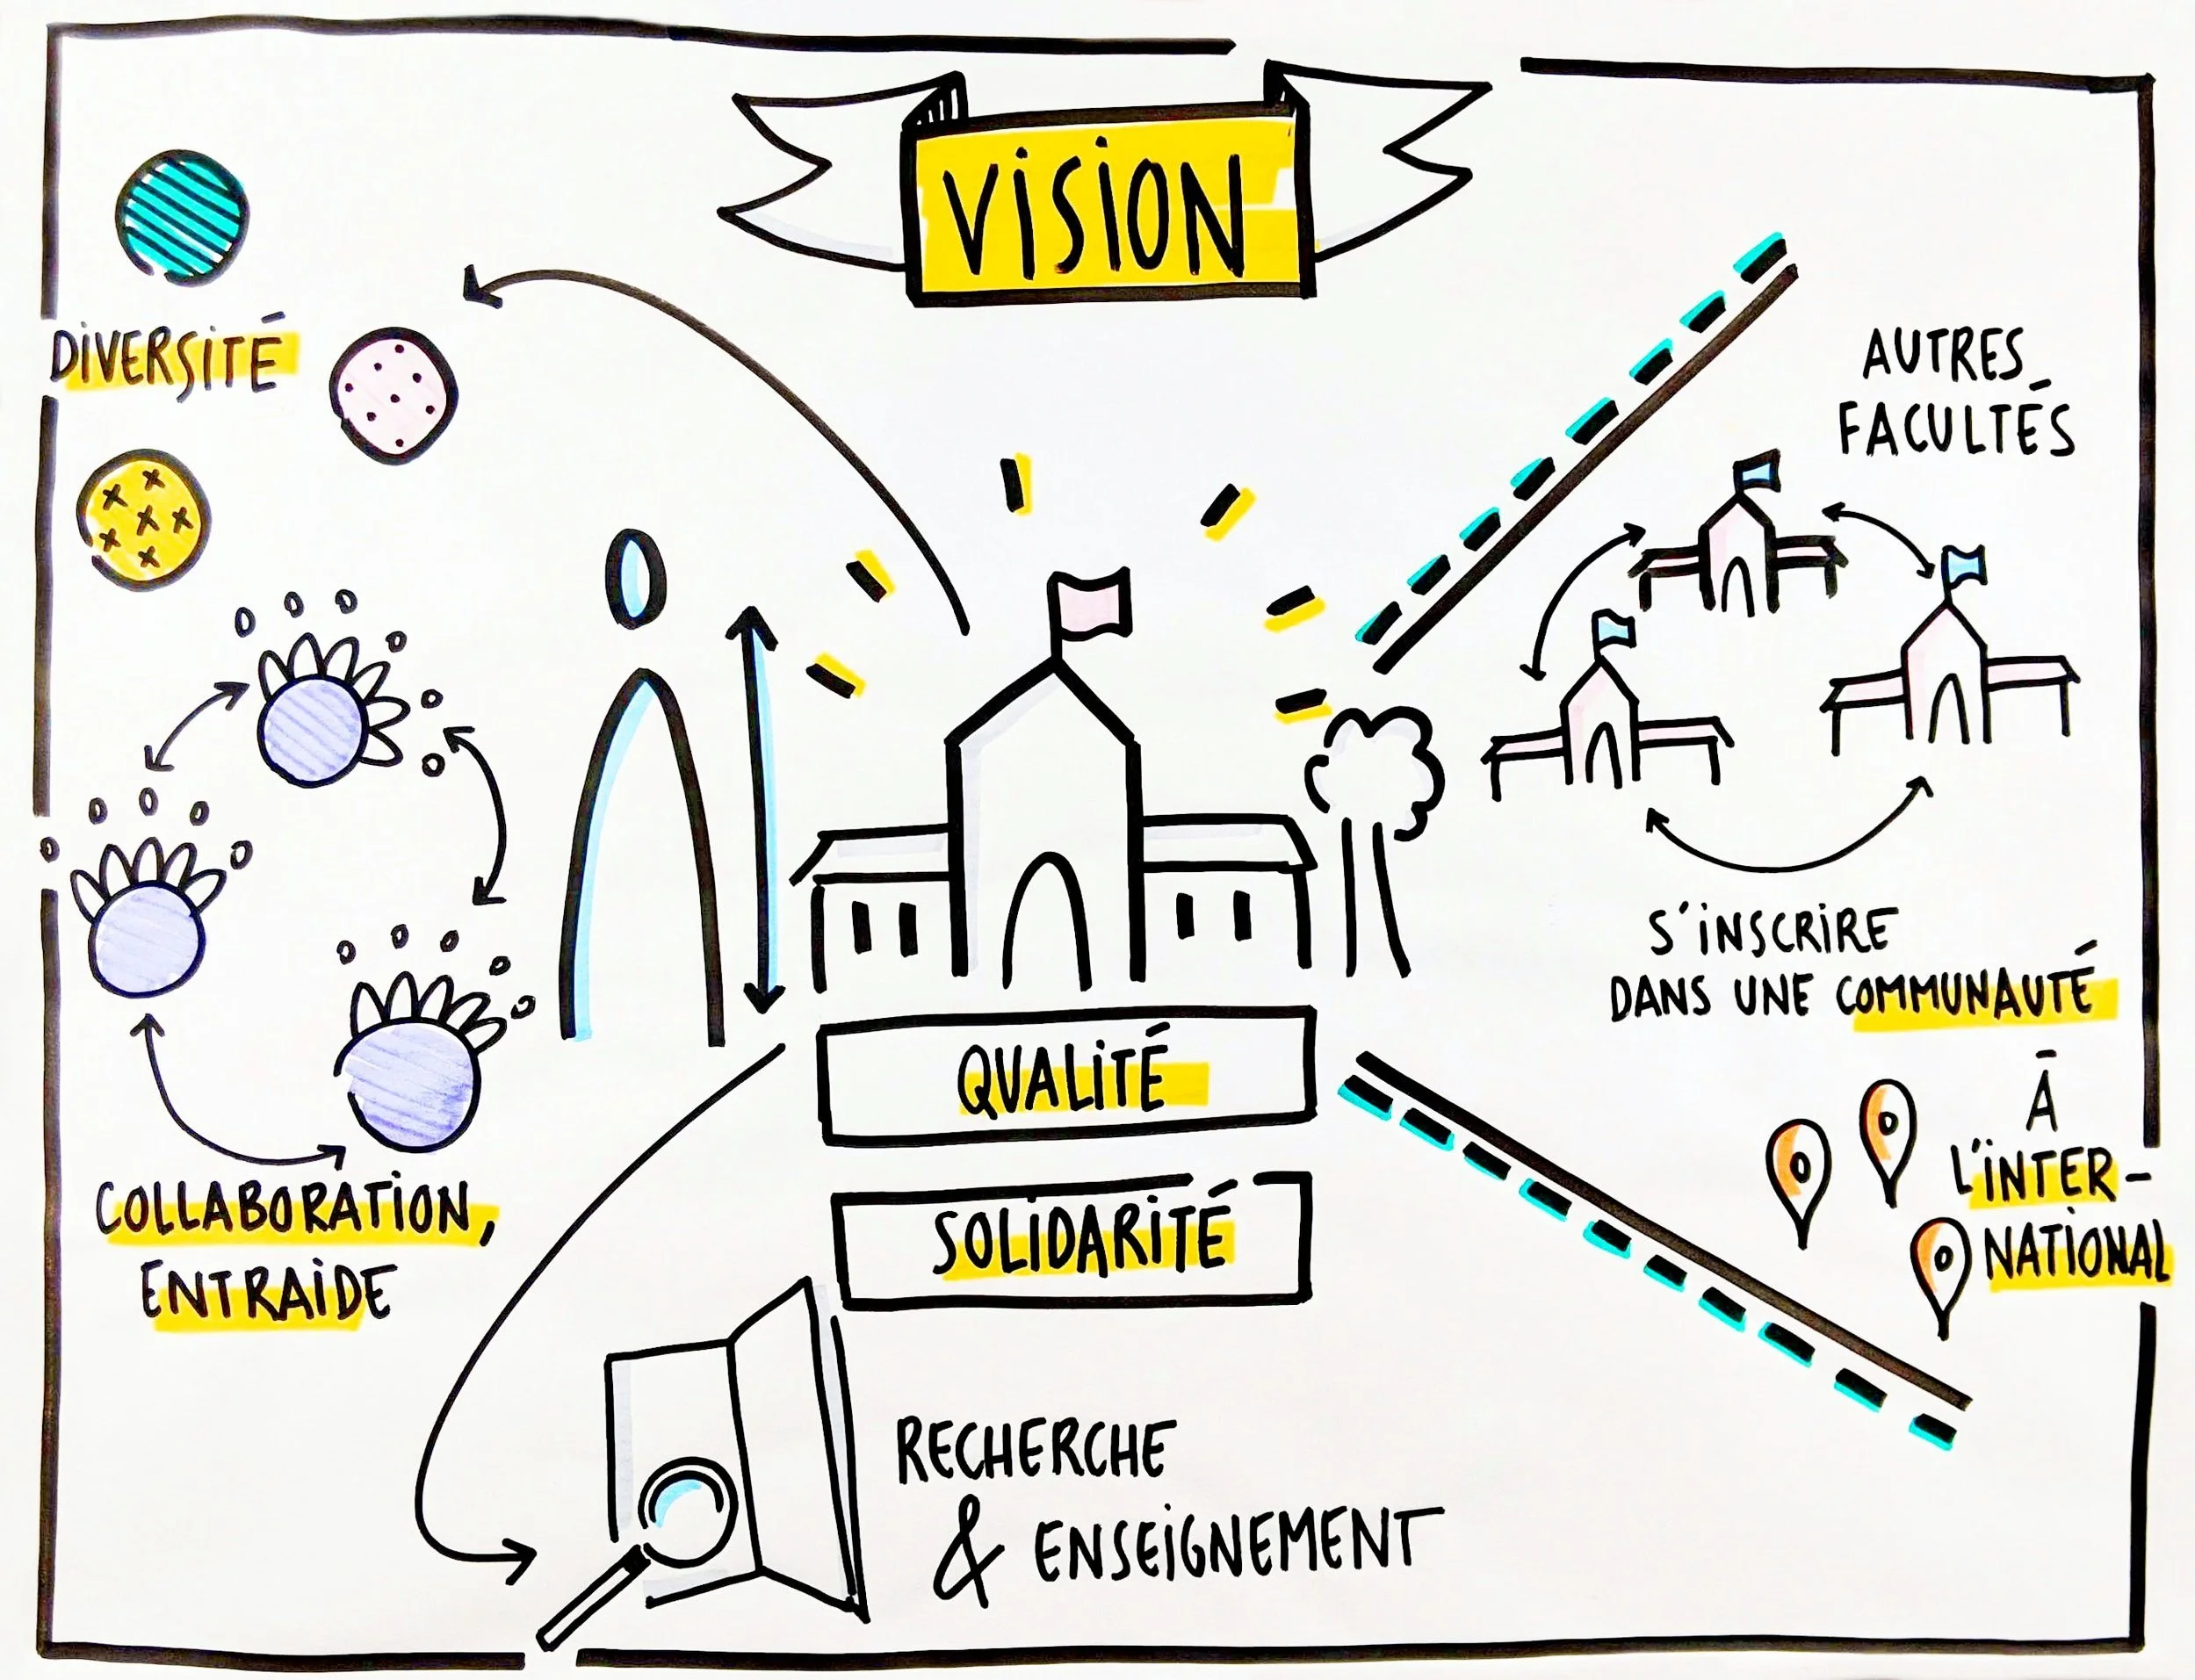 VISION
DIVERSITÉ
COLLABORATION,
ENTRAIDE
QUALITÉ
SOLIDARITÉ
RECHERCHE
& ENSEIGNEMENT
AUTRES
FACULTÉS
S'INSCRIRE
DANS UNE COMMUNAUTÉ
À
L'INTER-
NATIONAL